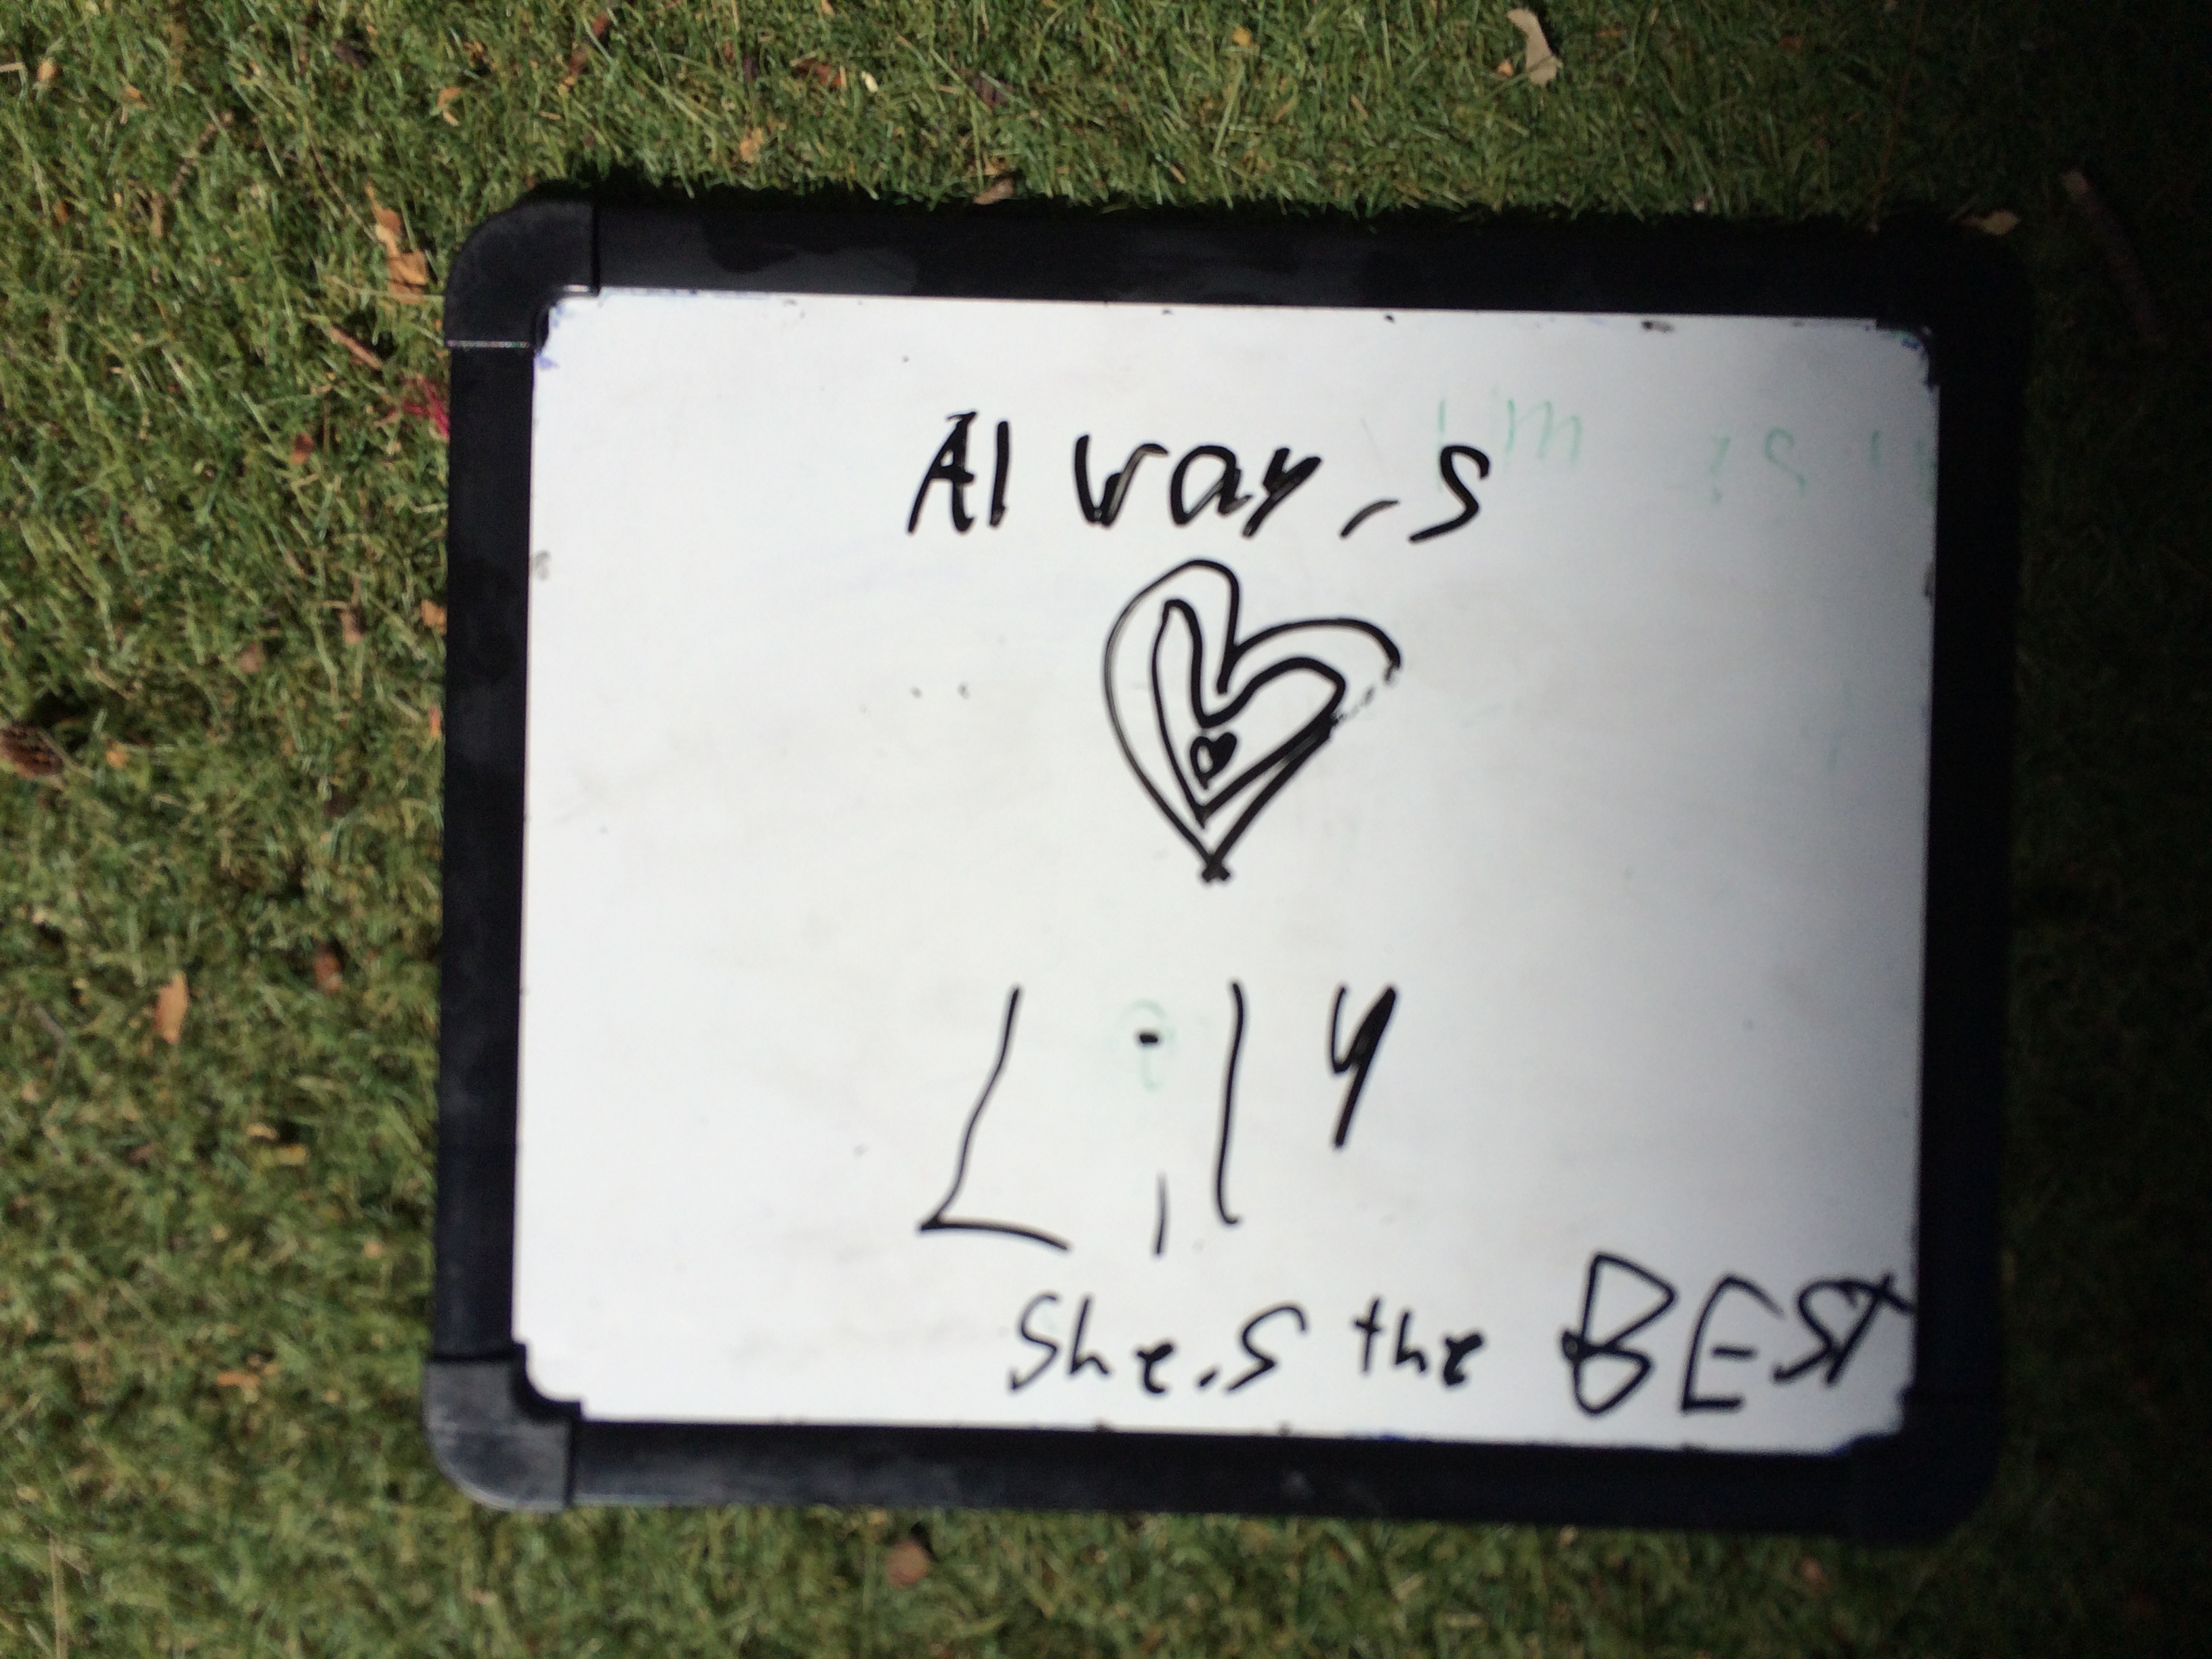 Alway,s
Lily
She,s the BEST